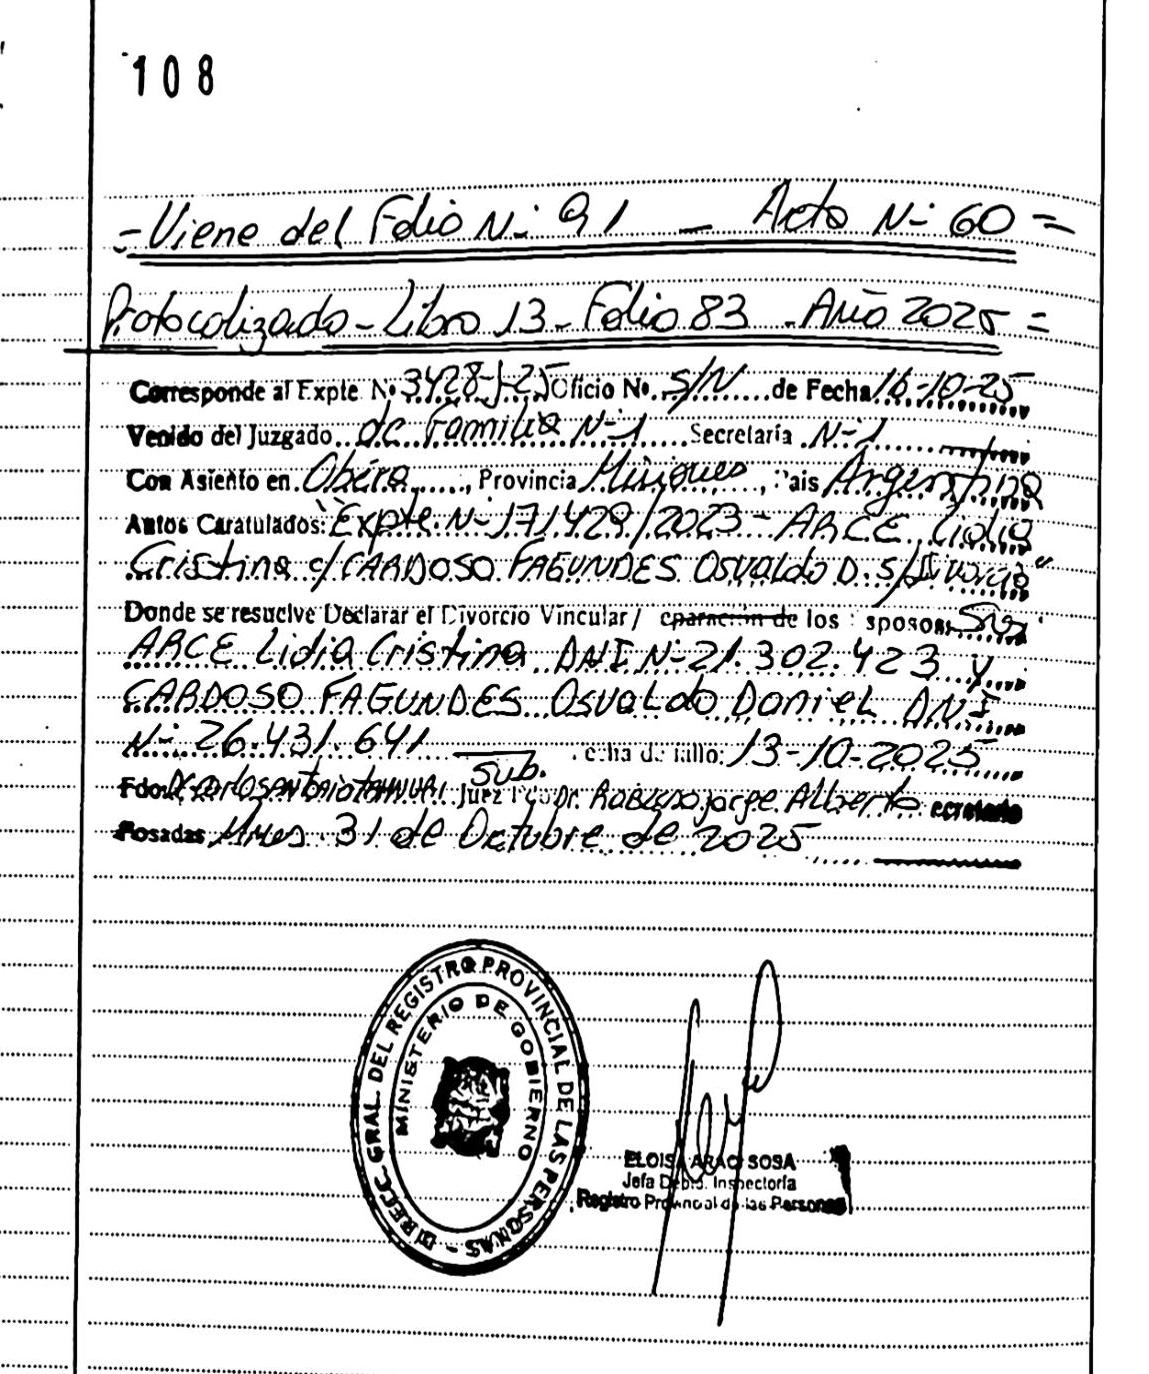 108
= Viene del Folio N- 91 - Acto N- 60 =
Protocolizado - Libro 13 - Folio 83 - Año 2025 =
Corresponde al Expte Nº 3428-J-25 Oficio No. S/N de Fecha 16-10-25
Venido del Juzgado de Familia N-1 Secretaría N-1
Con Asiento en Oberá, Provincia Misiones, Pais Argentina
Autos Caratulados: "Expte. N-171429/2023 - ARCE Lidia
Cristina c/ CARDOSO FAGUNDES Osvaldo D. s/Divorcio"
Donde se resuelve Declarar el Divorcio Vincular/ eparación de los sposos
ARCE Lidia Cristina DNI N-21.302.423 y
CARDOSO FAGUNDES Osvaldo Daniel DNI
N- 26.431.641 echa de fallo: 13-10-2025
Sub.
Fdo. Juez Dr. Jorge Alberto ecretario
Posadas, Mnes. 31 de Octubre de 2025
DIRECC. GRAL. DEL REGISTRO PROVINCIAL DE LAS PERSONAS -
MINISTERIO DE GOBIERNO
ELOISA SOSA
Jefa Dpto. Inspectoría
Registro Provincial de las Personas